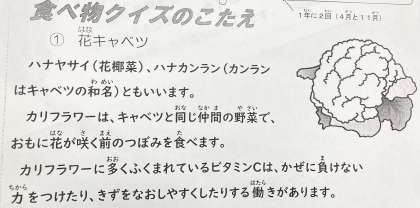 食べ物クイズのこたえ
1年に2回(4月と11月)
① 花キャベツ
ハナヤサイ(花椰菜)、ハナカンラン(カンラン
はキャベツの和名)ともいいます。
カリフラワーは、キャベツと同じ仲間の野菜で、
おもに花が咲く前のつぼみを食べます。
カリフラワーに多くふくまれているビタミンCは、かぜに負けない
力をつけたり、きずをなおしやすくしたりする働きがあります。